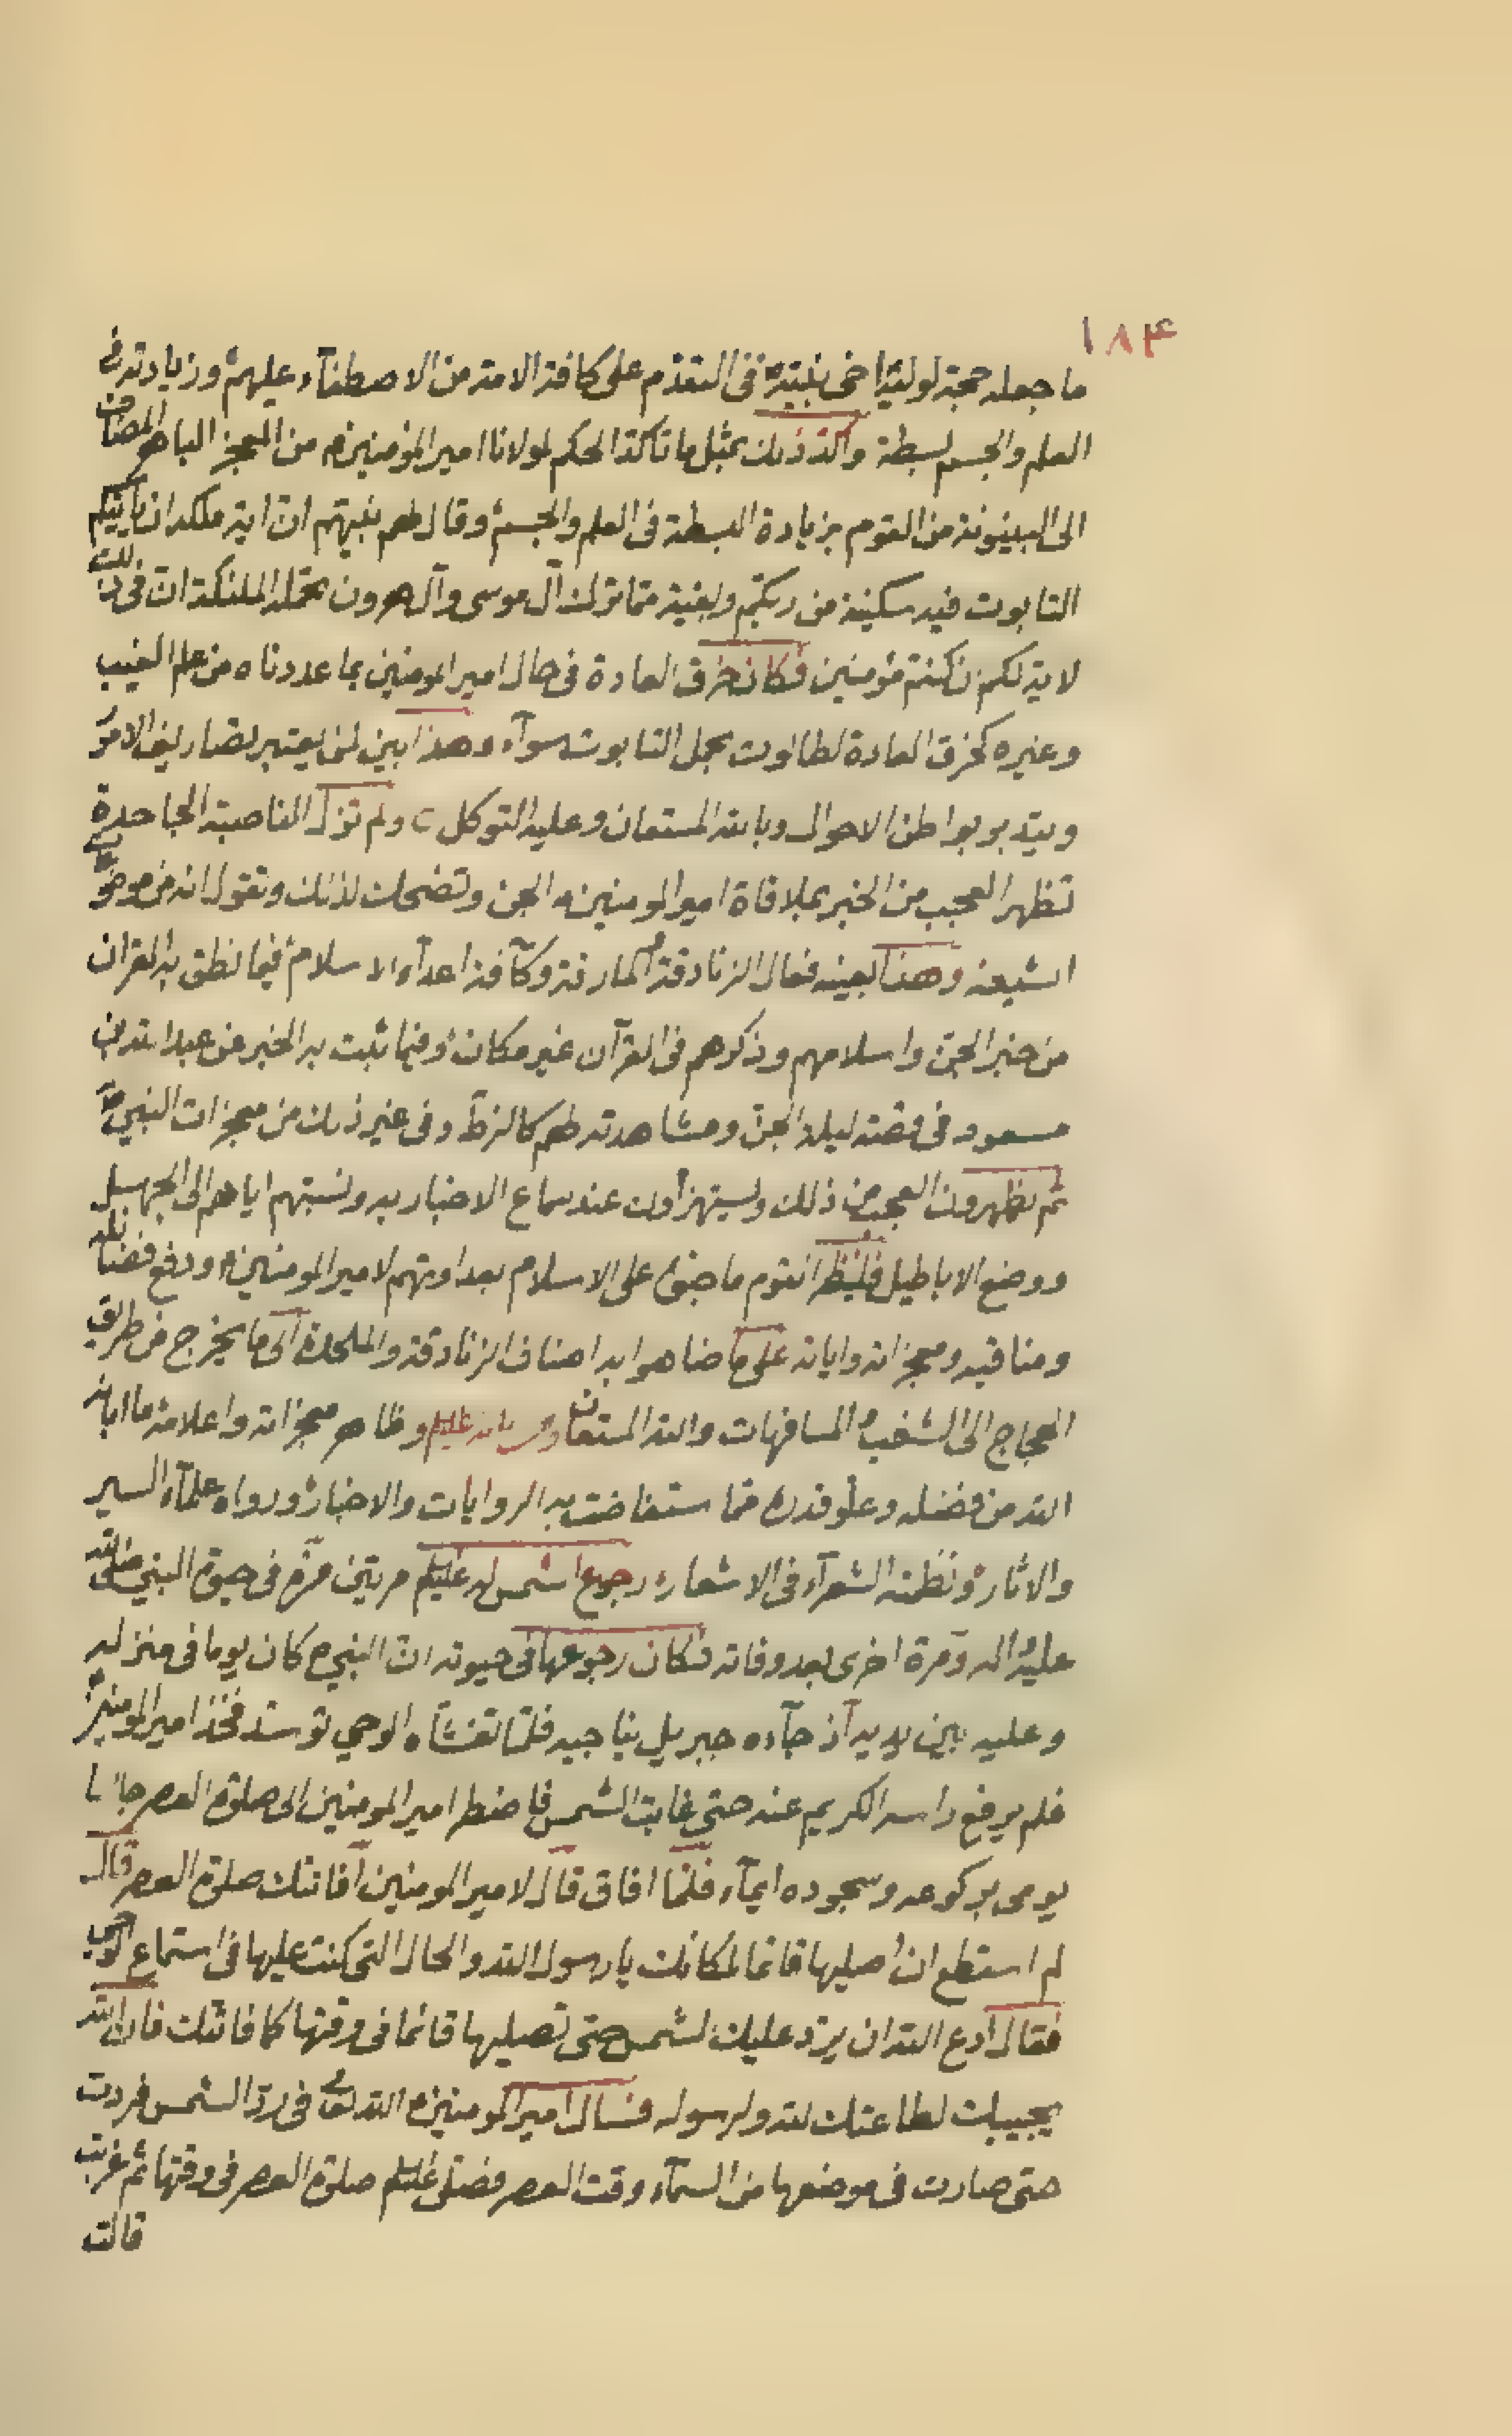 ١٨۴
ما جعله حجة لوليه اخى نبيّه فى التقدّم على كافة الامة من الاصطفآء عليهم وزيادته فى
العلم والجسم بسطة واكّد ذلك بمثل ما تاكّد الحكم لمولانا امير المؤمنين من المعجز الباهر المضاف
الى البينونة من القوم بزيادة البسطة فى العلم والجسم وقال لهم نبيهم ان اية ملكه ان ياتيكم
التابوت فيه سكينة من ربّكم وبقية ممّا ترك آل موسى وآل هرون تحمله الملئكة انّ فى ذلك
لاية لكم ان كنتم مؤمنين فكان خرق العادة فى حال امير المومنين بما عددناه من علم الغيب
وغيره كخرق العادة لطالوت بحمل التابوت سوآء وهذا بين لمن يعتبر بصاريف الامور
ويتدبر بواطن الاحوال وبالله المستعان وعليه التوكل ولم تزل الناصبة الجاحدة
تظهر العجب من الخبر بملاقاة امير المومنين الجن وتضحك لذلك وتقول انه من موضوعات
الشيعة وهذا بعينه فعال الزنادقة المارقة وكآفة اعدآء الاسلام فيما نطق به القران
من خبر الجنّ واسلامهم وذكرهم فى القرآن غير مكان وفيما ثبت به الخبر عن عبد الله بن
مسعود فى قصّة ليلة الجنّ ومشاهدته لهم كالزطّ وفى غير ذلك من معجزات النبي
ثم يظهرون العجب من ذلك ويستهزأون عند سماع الاخبار به ونسبتهم اياهم الى الجهل
ووضع الاباطيل فلينظر القوم ما جنوا على الاسلام بعداوتهم لامير المومنين ودفع فضائله
ومناقبه ومعجزاته واياته على ما ضاهوا به اصناف الزنادقة والملحدة الى ما يخرج من طريق
الحجاج الى الشغب والمسافهات والله المستعان ومن اياته عليلم وظاهر معجزاته واعلامه ما ابانه
الله من فضله وعلو قدره مما استفاضت به الروايات والاخبار ورواه علمآء السير
والاثار ونظمته الشعرآء فى الاشعار رجوع الشمس له عليلم مرتين مرّة فى حيوة النبي صلى الله
عليه واله ومرة اخرى بعد وفاته فكان رجوعها فى حيوته ان النبي كان يوما فى منزله
وعلي بين يديه اذ جآءه جبريل يناجيه فلمّا تغشّاه الوحي توسّد فخذ امير المومنين
فلم يرفع راسه الكريم عنه حتى غابت الشمس فاضطر امير المومنين الى صلوة العصر جالسا
يومى بركوعه وسجوده ايمآء فلمّا افاق قال لامير المومنين أفاتتك صلوة العصر قال
لم استطع ان اصليها قائما لمكانك يا رسول الله والحال التى كنت عليها فى استماع الوحي
فقال ادع الله ان يردّ عليك الشمس حتى تصليها قائما فى وقتها كما فاتتك فان الله
يجيبك لطاعتك لله ولرسوله فسال امير المومنين الله تعالى فى ردّ الشمس فردت
حتى صارت فى موضعها من السمآء وقت العصر فصلى عليلم صلوة العصر فى وقتها ثم غربت
قالت